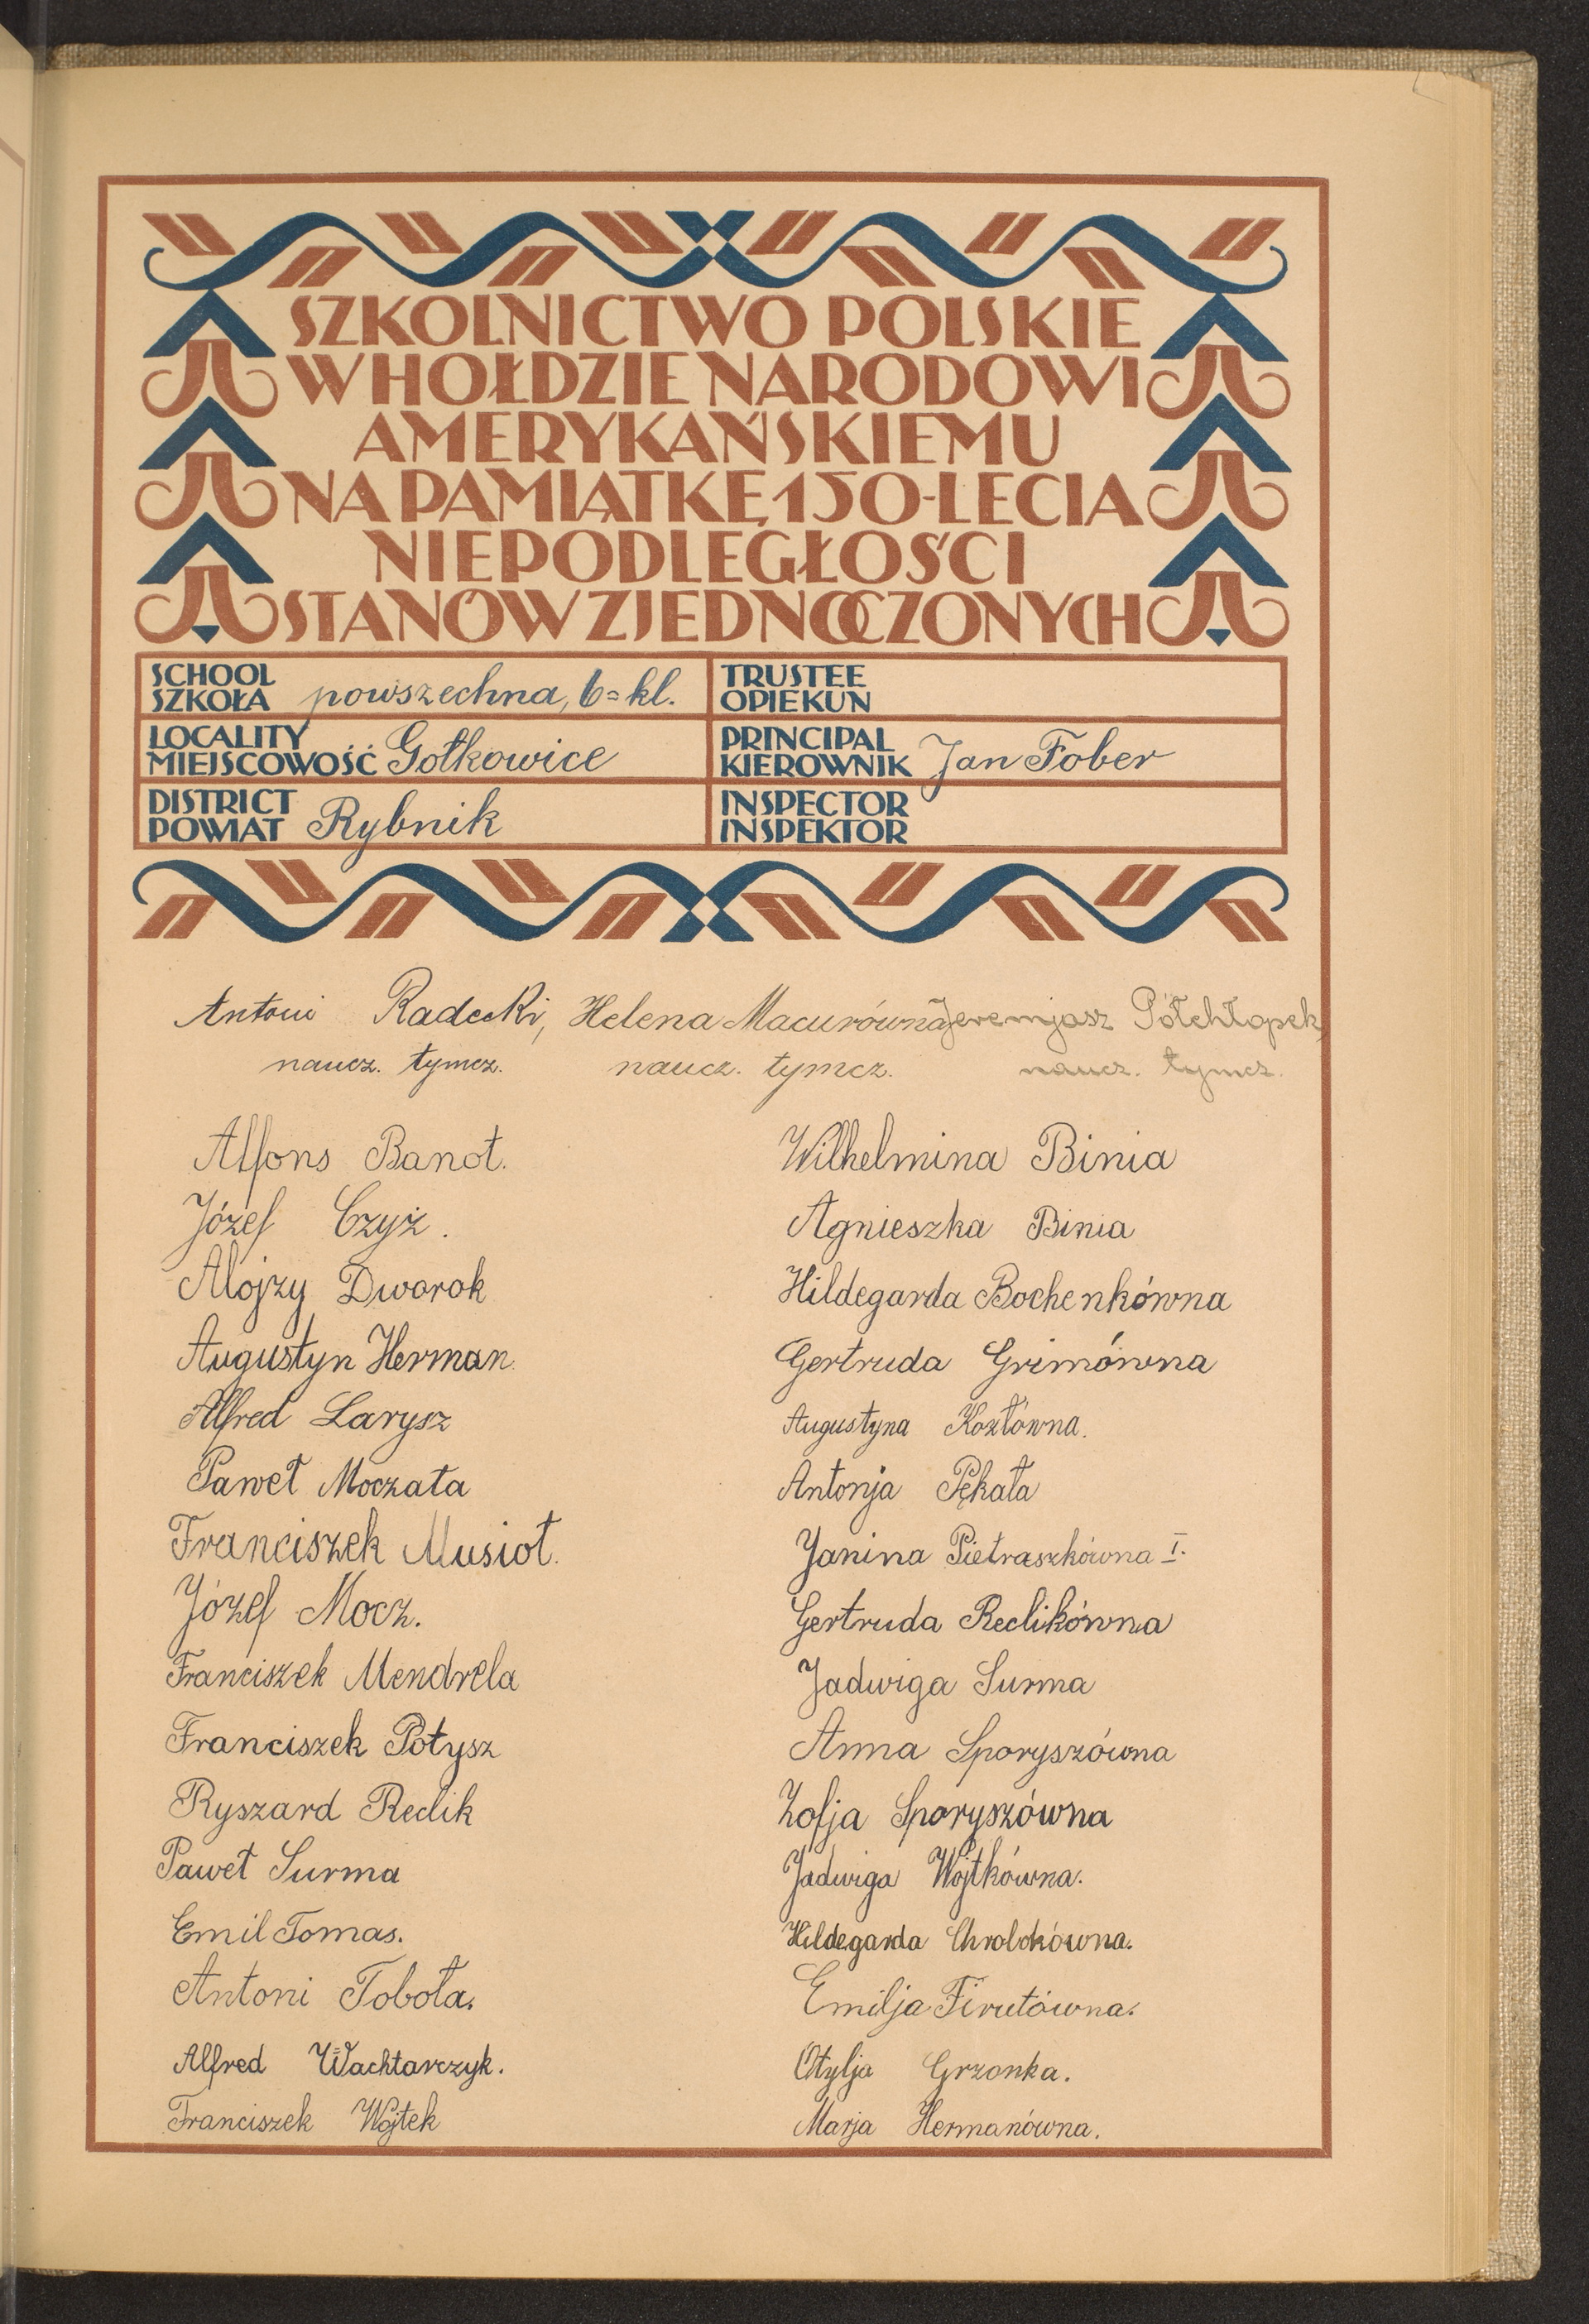 SZKOLNICTWO POLSKIE
W HOŁDZIE NARODOWI
AMERYKAŃSKIEMU
NA PAMIĄTKĘ 150-LECIA
NIEPODLEGŁOŚCI
STANÓW ZJEDNOCZONYCH
SCHOOL
SZKOŁA powszechna, 6=kl.
TRUSTEE
OPIEKUN
LOCALITY
MIEJSCOWOŚĆ Gołkowice
PRINCIPAL
KIEROWNIK Jan Fober
DISTRICT
POWIAT Rybnik
INSPECTOR
INSPEKTOR
Antoni Radecki, Helena Macurówna, Jeremjasz Półchłopek,
naucz. tymcz. naucz. tymcz. naucz. tymcz.
Alfons Banot.
Józef Czyż.
Alojzy Dworok
Augustyn Herman.
Alfred Larysz
Paweł Moczała
Franciszek Musioł.
Józef Mocz.
Franciszek Mendrela
Franciszek Połysz
Ryszard Reclik
Paweł Surma
Emil Tomas.
Antoni Toboła.
Alfred Wachtarczyk.
Franciszek Wojtek
Wilhelmina Binia
Agnieszka Binia
Hildegarda Bochenkówna
Gertruda Grimówna
Augustyna Kozłówna.
Antonja Pękała
Janina Pietraszkówna I.
Gertruda Reclikówna
Jadwiga Surma
Anna Sporyszówna
Zofja Sporyszówna
Jadwiga Wojtkówna.
Hildegarda Chrobokówna.
Emilja Firutówna.
Otylja Grzonka.
Marja Hermanówna.